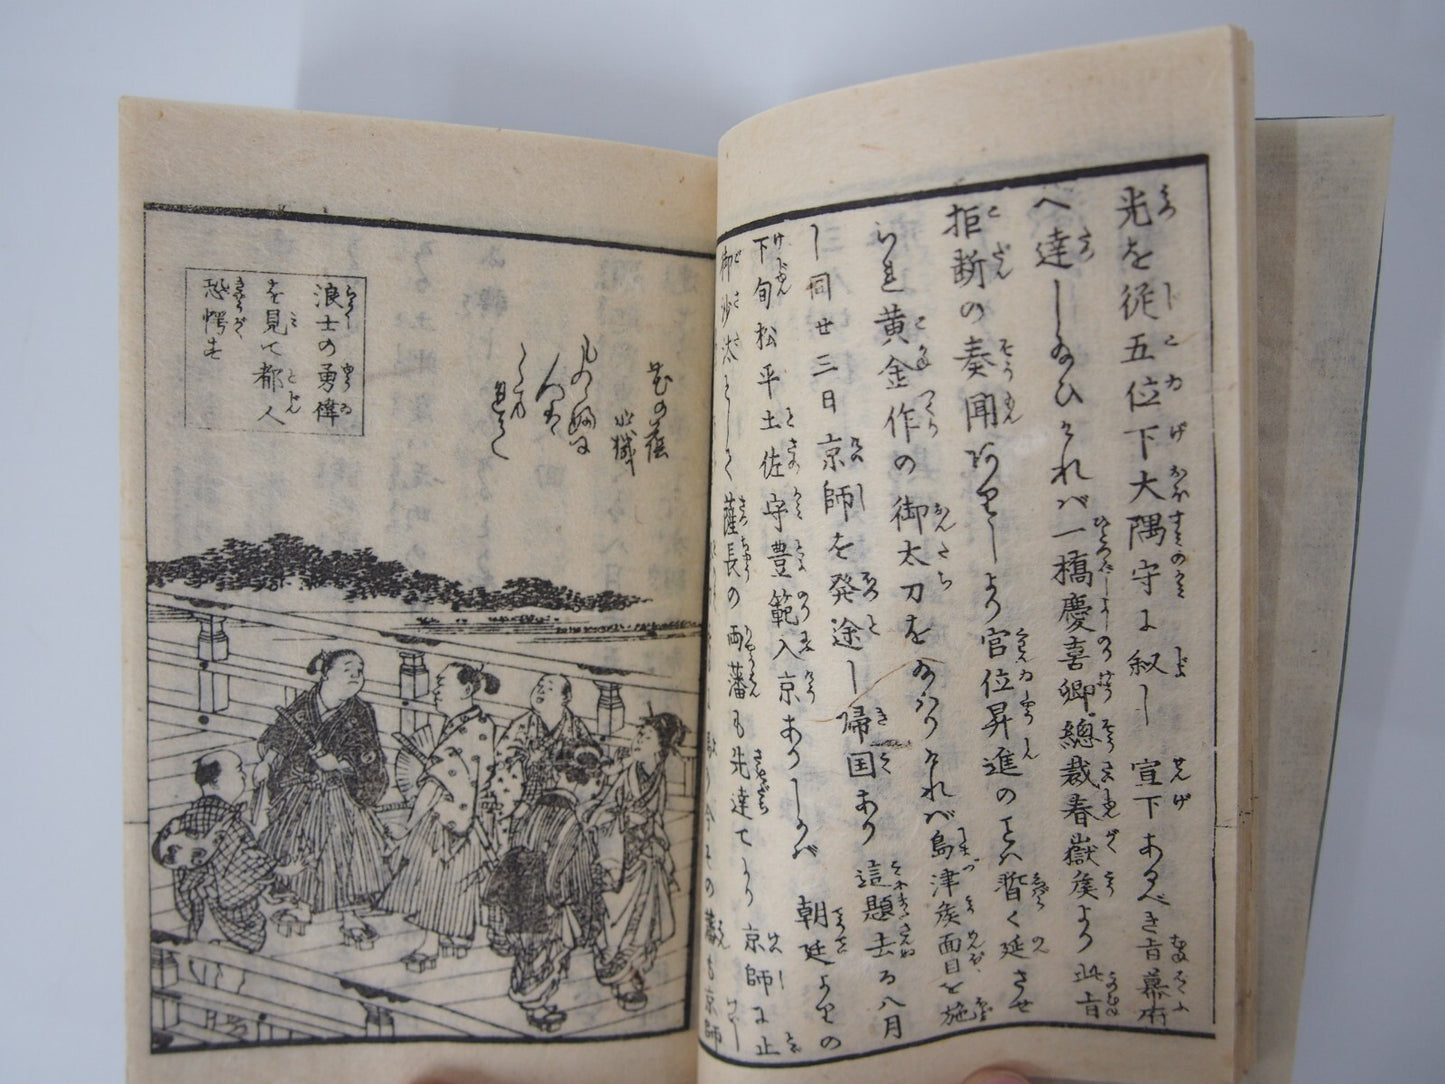 光を従五位下大隅守に叙し宣下あるべき旨幕府
へ達し給ひけれバ一橋慶喜卿總裁春嶽矦より此旨
拒断の奏聞ありしより官位昇進のことハ暫く延させ
られ黄金作の御太刀を給はりけれバ島津矦面目を施
し同廿三日京師を発途し帰国あり這題去る八月
下旬松平土佐守豊範入京ありしが朝廷よりの
御沙汰として薩長の両藩も先達てより京師に止
の藩も京師
浪士の勇偉
を見て都人
恐愕す
花の蔭
もの
人は